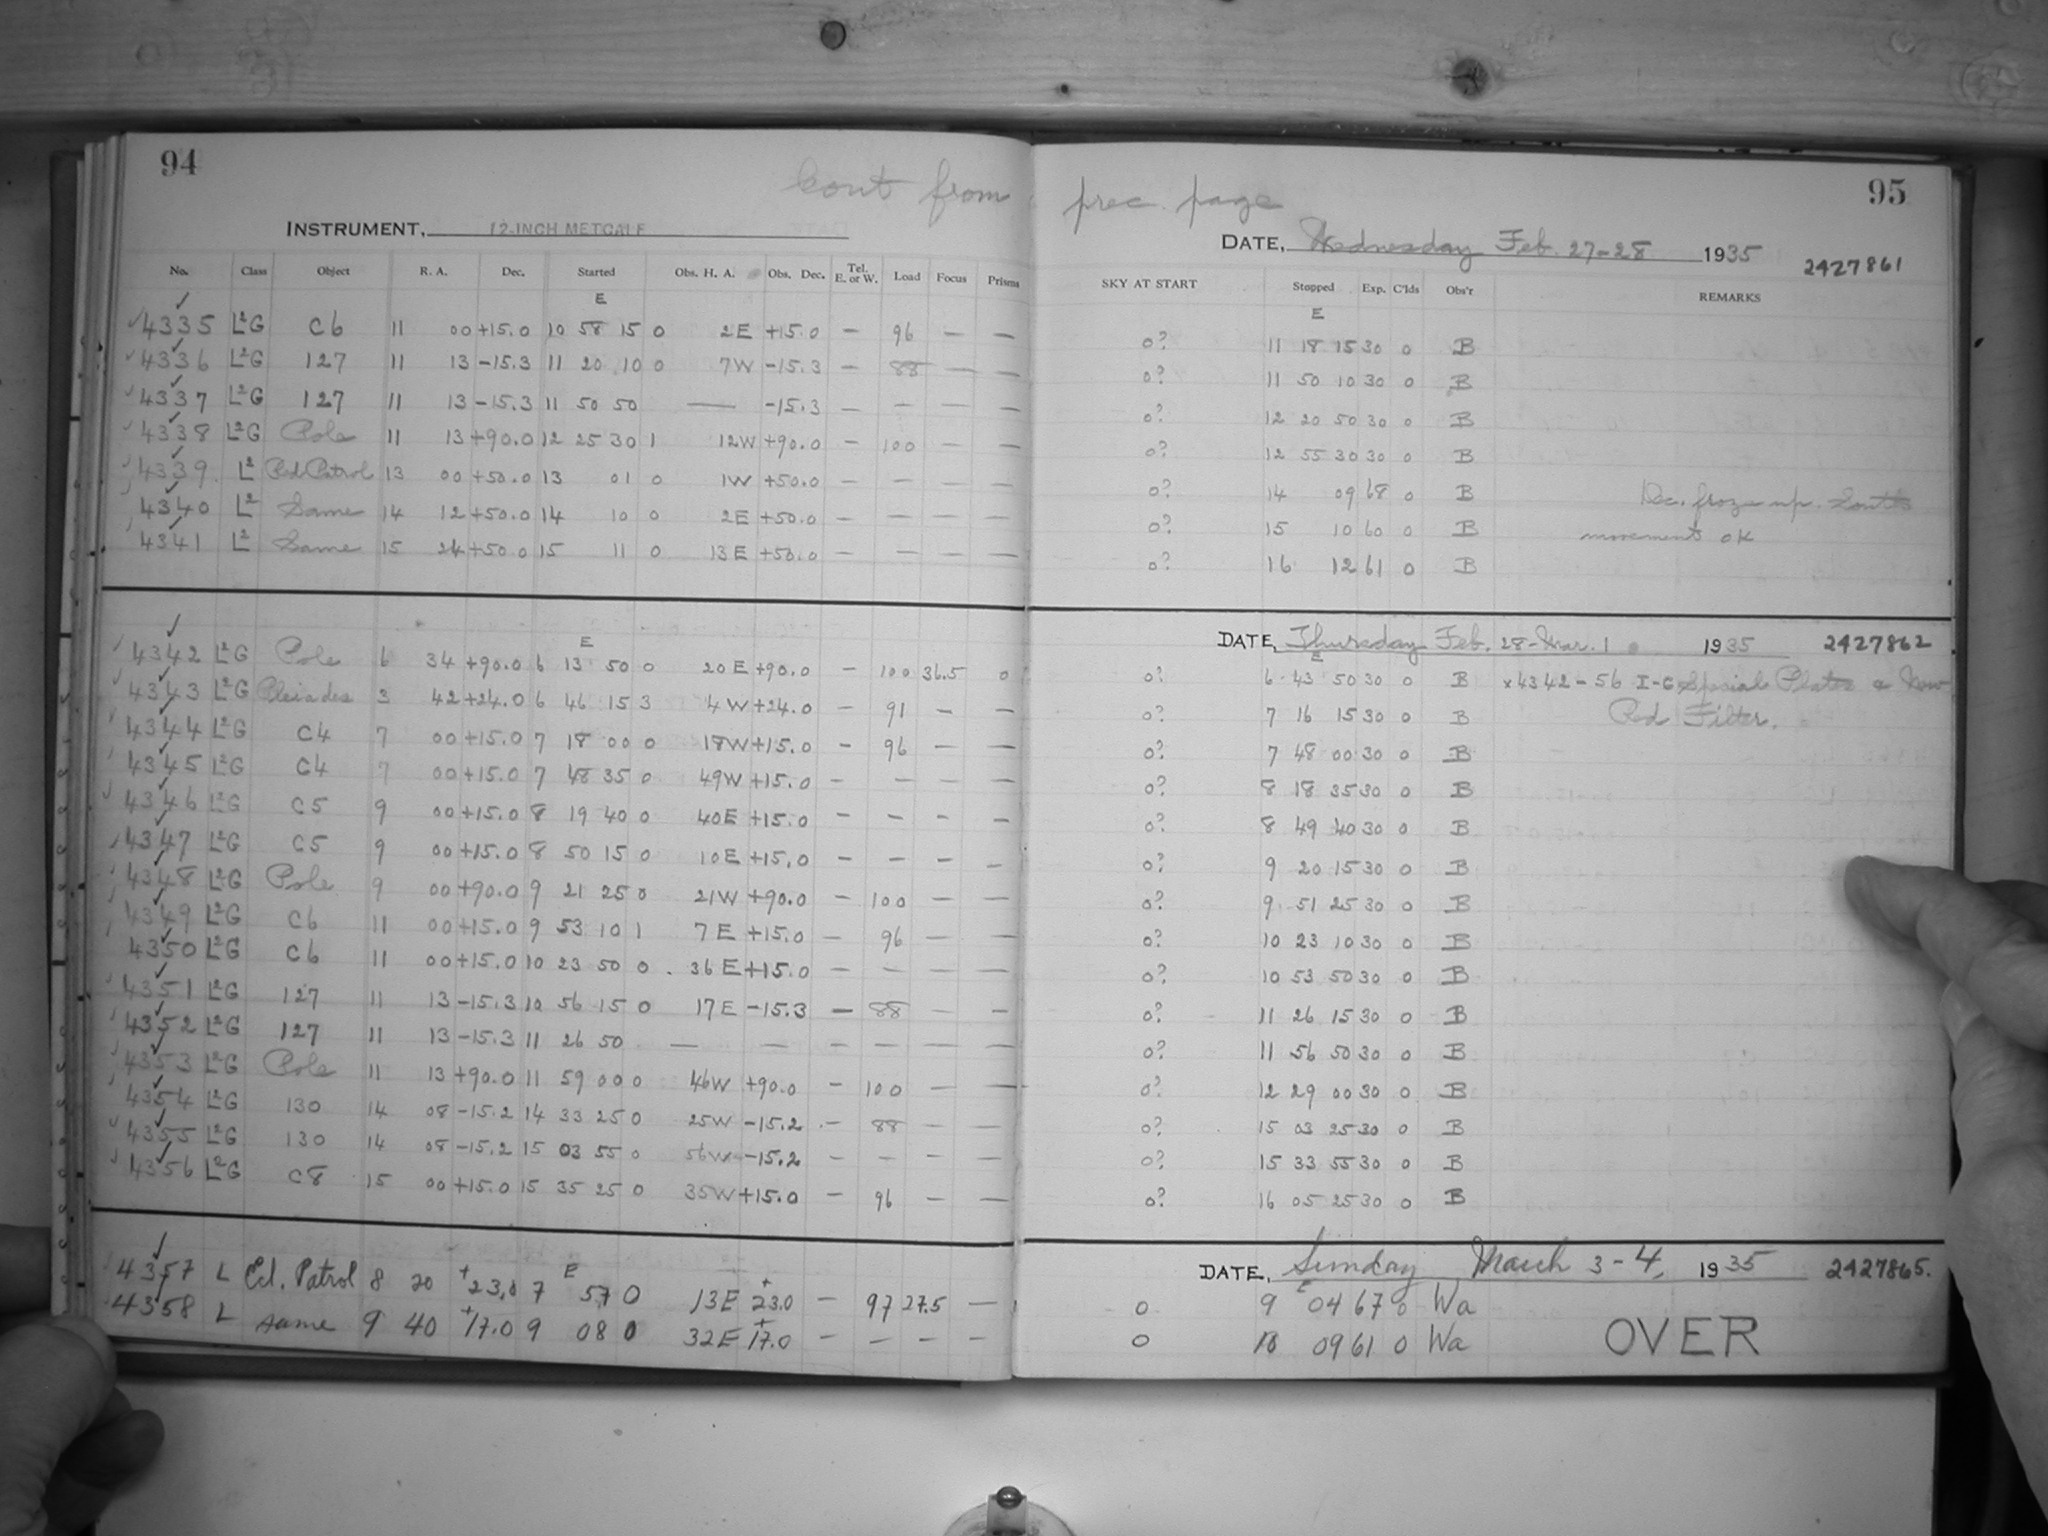 94
Cont from prec. page
95
INSTRUMENT, 12-INCH METCALF
DATE, Wednesday Feb. 27-28 1935 2427861
No. Class Object R. A. Dec. Started Obs. H. A. Obs. Dec. Tel. E. or W. Load Focus Prisms SKY AT START Stopped Exp. C'lds Obs'r REMARKS
E E
4335 L²G C6 11 00 +15.0 10 58 15 0 2E +15.0 — 96 — — 0? 11 18 15 30 0 B
4336 L²G 127 11 13 -15.3 11 20 10 0 7W -15.3 — 88 — — 0? 11 50 10 30 0 B
4337 L²G 127 11 13 -15.3 11 50 50 — -15.3 — — — — 0? 12 20 50 30 0 B
4338 L²G Pole 11 13 +90.0 12 25 30 1 12W +90.0 — 100 — — 0? 12 55 30 30 0 B
4339 L² Red Patrol 13 00 +50.0 13 01 0 1W +50.0 — — — — 0? 14 09 68 0 B Dec. froze up. South
4340 L² Same 14 12 +50.0 14 10 0 2E +50.0 — — — — 0? 15 10 60 0 B movement OK
4341 L² Same 15 24 +50.0 15 11 0 13E +50.0 — — — — 0? 16 12 61 0 B
DATE, Thursday Feb. 28-Mar. 1 1935 2427862
E E
4342 L²G Pole 6 34 +90.0 6 13 50 0 20E +90.0 — 100 36.5 0 0? 6 43 50 30 0 B x4342-56 I-C Special Plates & New
4343 L²G Pleiades 3 42 +24.0 6 46 15 3 4W +24.0 — 91 — — 0? 7 16 15 30 0 B Red Filter.
4344 L²G C4 7 00 +15.0 7 18 00 0 18W +15.0 — 96 — — 0? 7 48 00 30 0 B
4345 L²G C4 7 00 +15.0 7 48 35 0 49W +15.0 — — — — 0? 8 18 35 30 0 B
4346 L²G C5 9 00 +15.0 8 19 40 0 40E +15.0 — — — — 0? 8 49 40 30 0 B
4347 L²G C5 9 00 +15.0 8 50 15 0 10E +15.0 — — — — 0? 9 20 15 30 0 B
4348 L²G Pole 9 00 +90.0 9 21 25 0 21W +90.0 — 100 — — 0? 9 51 25 30 0 B
4349 L²G C6 11 00 +15.0 9 53 10 1 7E +15.0 — 96 — — 0? 10 23 10 30 0 B
4350 L²G C6 11 00 +15.0 10 23 50 0 36E +15.0 — — — — 0? 10 53 50 30 0 B
4351 L²G 127 11 13 -15.3 10 56 15 0 17E -15.3 — 88 — — 0? 11 26 15 30 0 B
4352 L²G 127 11 13 -15.3 11 26 50 — — — — — — 0? 11 56 50 30 0 B
4353 L²G Pole 11 13 +90.0 11 59 00 0 46W +90.0 — 100 — — 0? 12 29 00 30 0 B
4354 L²G 130 14 08 -15.2 14 33 25 0 25W -15.2 — 88 — — 0? 15 03 25 30 0 B
4355 L²G 130 14 08 -15.2 15 03 55 0 56W -15.2 — — — — 0? 15 33 55 30 0 B
4356 L²G C8 15 00 +15.0 15 35 25 0 35W +15.0 — 96 — — 0? 16 05 25 30 0 B
DATE, Sunday March 3-4, 1935 2427865.
E E
4357 L Ecl. Patrol 8 20 +23.0 7 57 0 13E +23.0 — 97 27.5 — 0 9 04 67 0 Wa
4358 L same 9 40 +17.0 9 08 0 32E +17.0 — — — — 0 10 09 61 0 Wa OVER